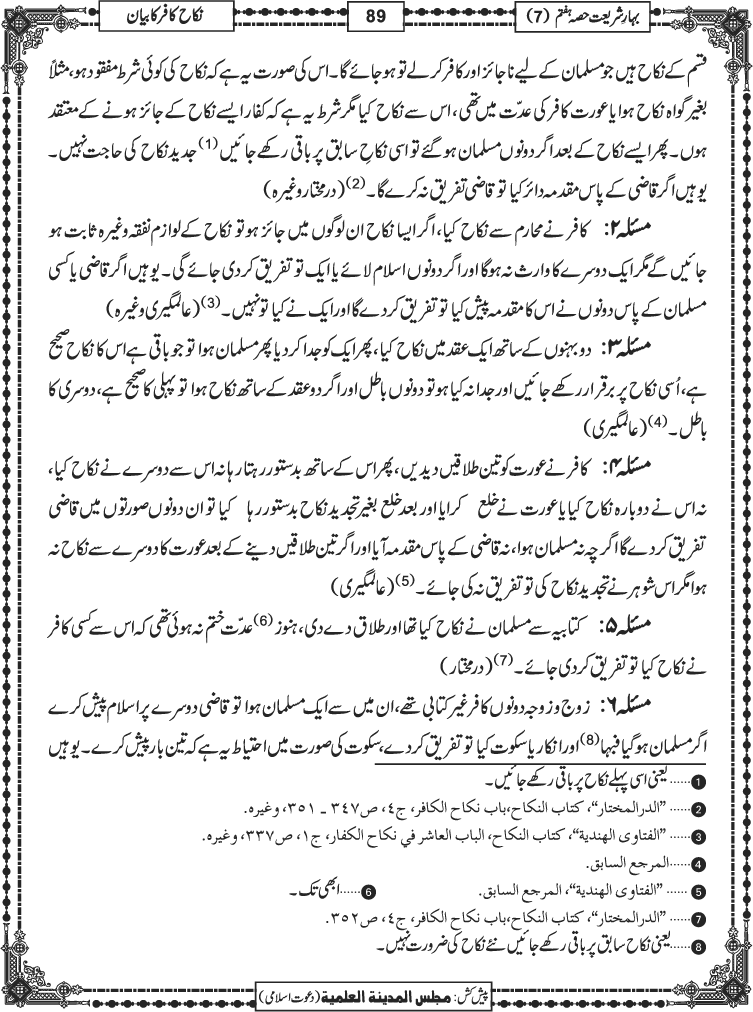 بہارِ شریعت حصہ ہفتم (7)
89
نکاح کافر کا بیان
قسم کے نکاح ہیں جو مسلمان کے لیے ناجائز اور کافر کرلے تو ہو جائے گا۔ اس کی صورت یہ ہے کہ نکاح کی کوئی شرط مفقود ہو، مثلاً
بغیر گواہ نکاح ہوا یا عورت کافر کی عدّت میں تھی، اس سے نکاح کیا مگر شرط یہ ہے کہ کفار ایسے نکاح کے جائز ہونے کے معتقد
ہوں۔ پھر ایسے نکاح کے بعد اگر دونوں مسلمان ہوگئے تو اسی نکاحِ سابق پر باقی رکھے جائیں (1) جدید نکاح کی حاجت نہیں۔
یوہیں اگر قاضی کے پاس مقدمہ دائر کیا تو قاضی تفریق نہ کرے گا۔(2) (درمختار وغیرہ)
مسئلہ ۲: کافر نے محارم سے نکاح کیا، اگر ایسا نکاح ان لوگوں میں جائز ہو تو نکاح کے لوازم نفقہ وغیرہ ثابت ہو
جائیں گے مگر ایک دوسرے کا وارث نہ ہوگا اور اگر دونوں اسلام لائے یا ایک تو تفریق کر دی جائے گی۔ یوہیں اگر قاضی یا کسی
مسلمان کے پاس دونوں نے اس کا مقدمہ پیش کیا تو تفریق کر دے گا اور ایک نے کیا تو نہیں۔(3) (عالمگیری وغیرہ)
مسئلہ ۳: دو بہنوں کے ساتھ ایک عقد میں نکاح کیا، پھر ایک کو جدا کر دیا پھر مسلمان ہوا تو جو باقی ہے اس کا نکاح صحیح
ہے، اُسی نکاح پر برقرار رکھے جائیں اور جدا نہ کیا ہو تو دونوں باطل اور اگر دو عقد کے ساتھ نکاح ہوا تو پہلی کا صحیح ہے، دوسری کا
باطل۔(4) (عالمگیری)
مسئلہ ۴: کافر نے عورت کو تین طلاقیں دیدیں، پھر اس کے ساتھ بدستور رہتا رہا نہ اس سے دوسرے نے نکاح کیا،
نہ اس نے دوبارہ نکاح کیا یا عورت نے خلع کرایا اور بعد خلع بغیر تجدید نکاح بدستور رہا کیا تو ان دونوں صورتوں میں قاضی
تفریق کر دے گا اگرچہ نہ مسلمان ہوا، نہ قاضی کے پاس مقدمہ آیا اور اگر تین طلاقیں دینے کے بعد عورت کا دوسرے سے نکاح نہ
ہوا مگر اس شوہر نے تجدید نکاح کی تو تفریق نہ کی جائے۔(5) (عالمگیری)
مسئلہ ۵: کتابیہ سے مسلمان نے نکاح کیا تھا اور طلاق دے دی، ہنوز (6) عدّت ختم نہ ہوئی تھی کہ اس سے کسی کافر
نے نکاح کیا تو تفریق کر دی جائے۔(7) (درمختار)
مسئلہ ۶: زوج و زوجہ دونوں کافر غیر کتابی تھے، ان میں سے ایک مسلمان ہوا تو قاضی دوسرے پر اسلام پیش کرے
اگر مسلمان ہوگیا فبہا (8) اور انکار یا سکوت کیا تو تفریق کر دے، سکوت کی صورت میں احتیاط یہ ہے کہ تین بار پیش کرے۔ یوہیں
1 ......یعنی اسی پہلے نکاح پر باقی رکھے جائیں۔
2 ......"الدرالمختار"، کتاب النکاح، باب نکاح الکافر، ج٤، ص٣٤٧ ـ ٣٥١، وغیرہ.
3 ......"الفتاوی الھندیة"، کتاب النکاح، الباب العاشر في نکاح الکفار، ج١، ص٣٣٧، وغیرہ.
4 ......المرجع السابق.
5 ......"الفتاوی الھندیة"، المرجع السابق. 6 ......ابھی تک۔
7 ......"الدرالمختار"، کتاب النکاح، باب نکاح الکافر، ج٤، ص٣٥٢.
8 ......یعنی نکاح سابق پر باقی رکھے جائیں نئے نکاح کی ضرورت نہیں۔
پیش کش: مجلس المدينة العلمية (دعوت اسلامی)